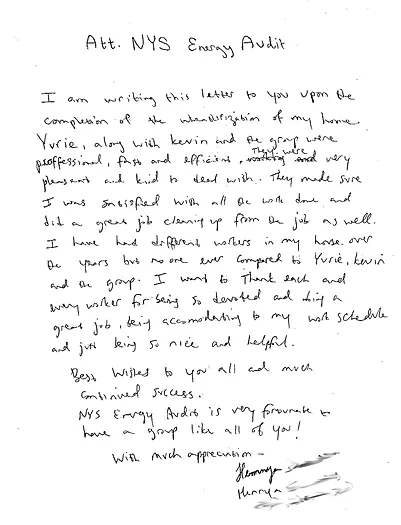 Att. NYS Energy Audit
I am writing this letter to you upon the
completion of the wheatherization of my home.
Yurie, along with kevin and the group were
proffessional, fast and efficient, They were very
pleasant and kind to deal with. They made sure
I was satisfied with all the work done, and
did a great job cleaning up from the job as well.
I have had different workers in my house over
the years but no one ever compared to Yurie, kevin
and the group. I want to Thank each and
every worker for being so devoted and doing a
great job, being accomodating to my work schedule
and just being so nice and helpful.
Best Wishes to you all and much
continued success.
NYS Energy Audit is very fortunate to
have a group like all of you!
With much appreciation -